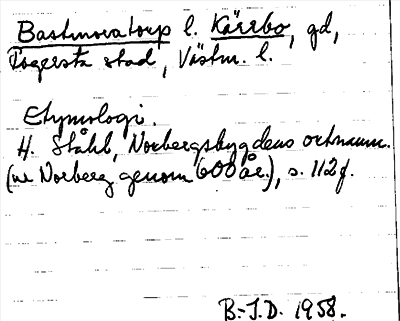 Bastmoratorp l. Kärrbo, gd,
Fagersta stad, Västm. l.
Etymologi.
H. Ståhl, Norbergsbygdens ortnamn.
(ur Norberg genom 600 år.), s. 112 f.
B.-J.D. 1958.